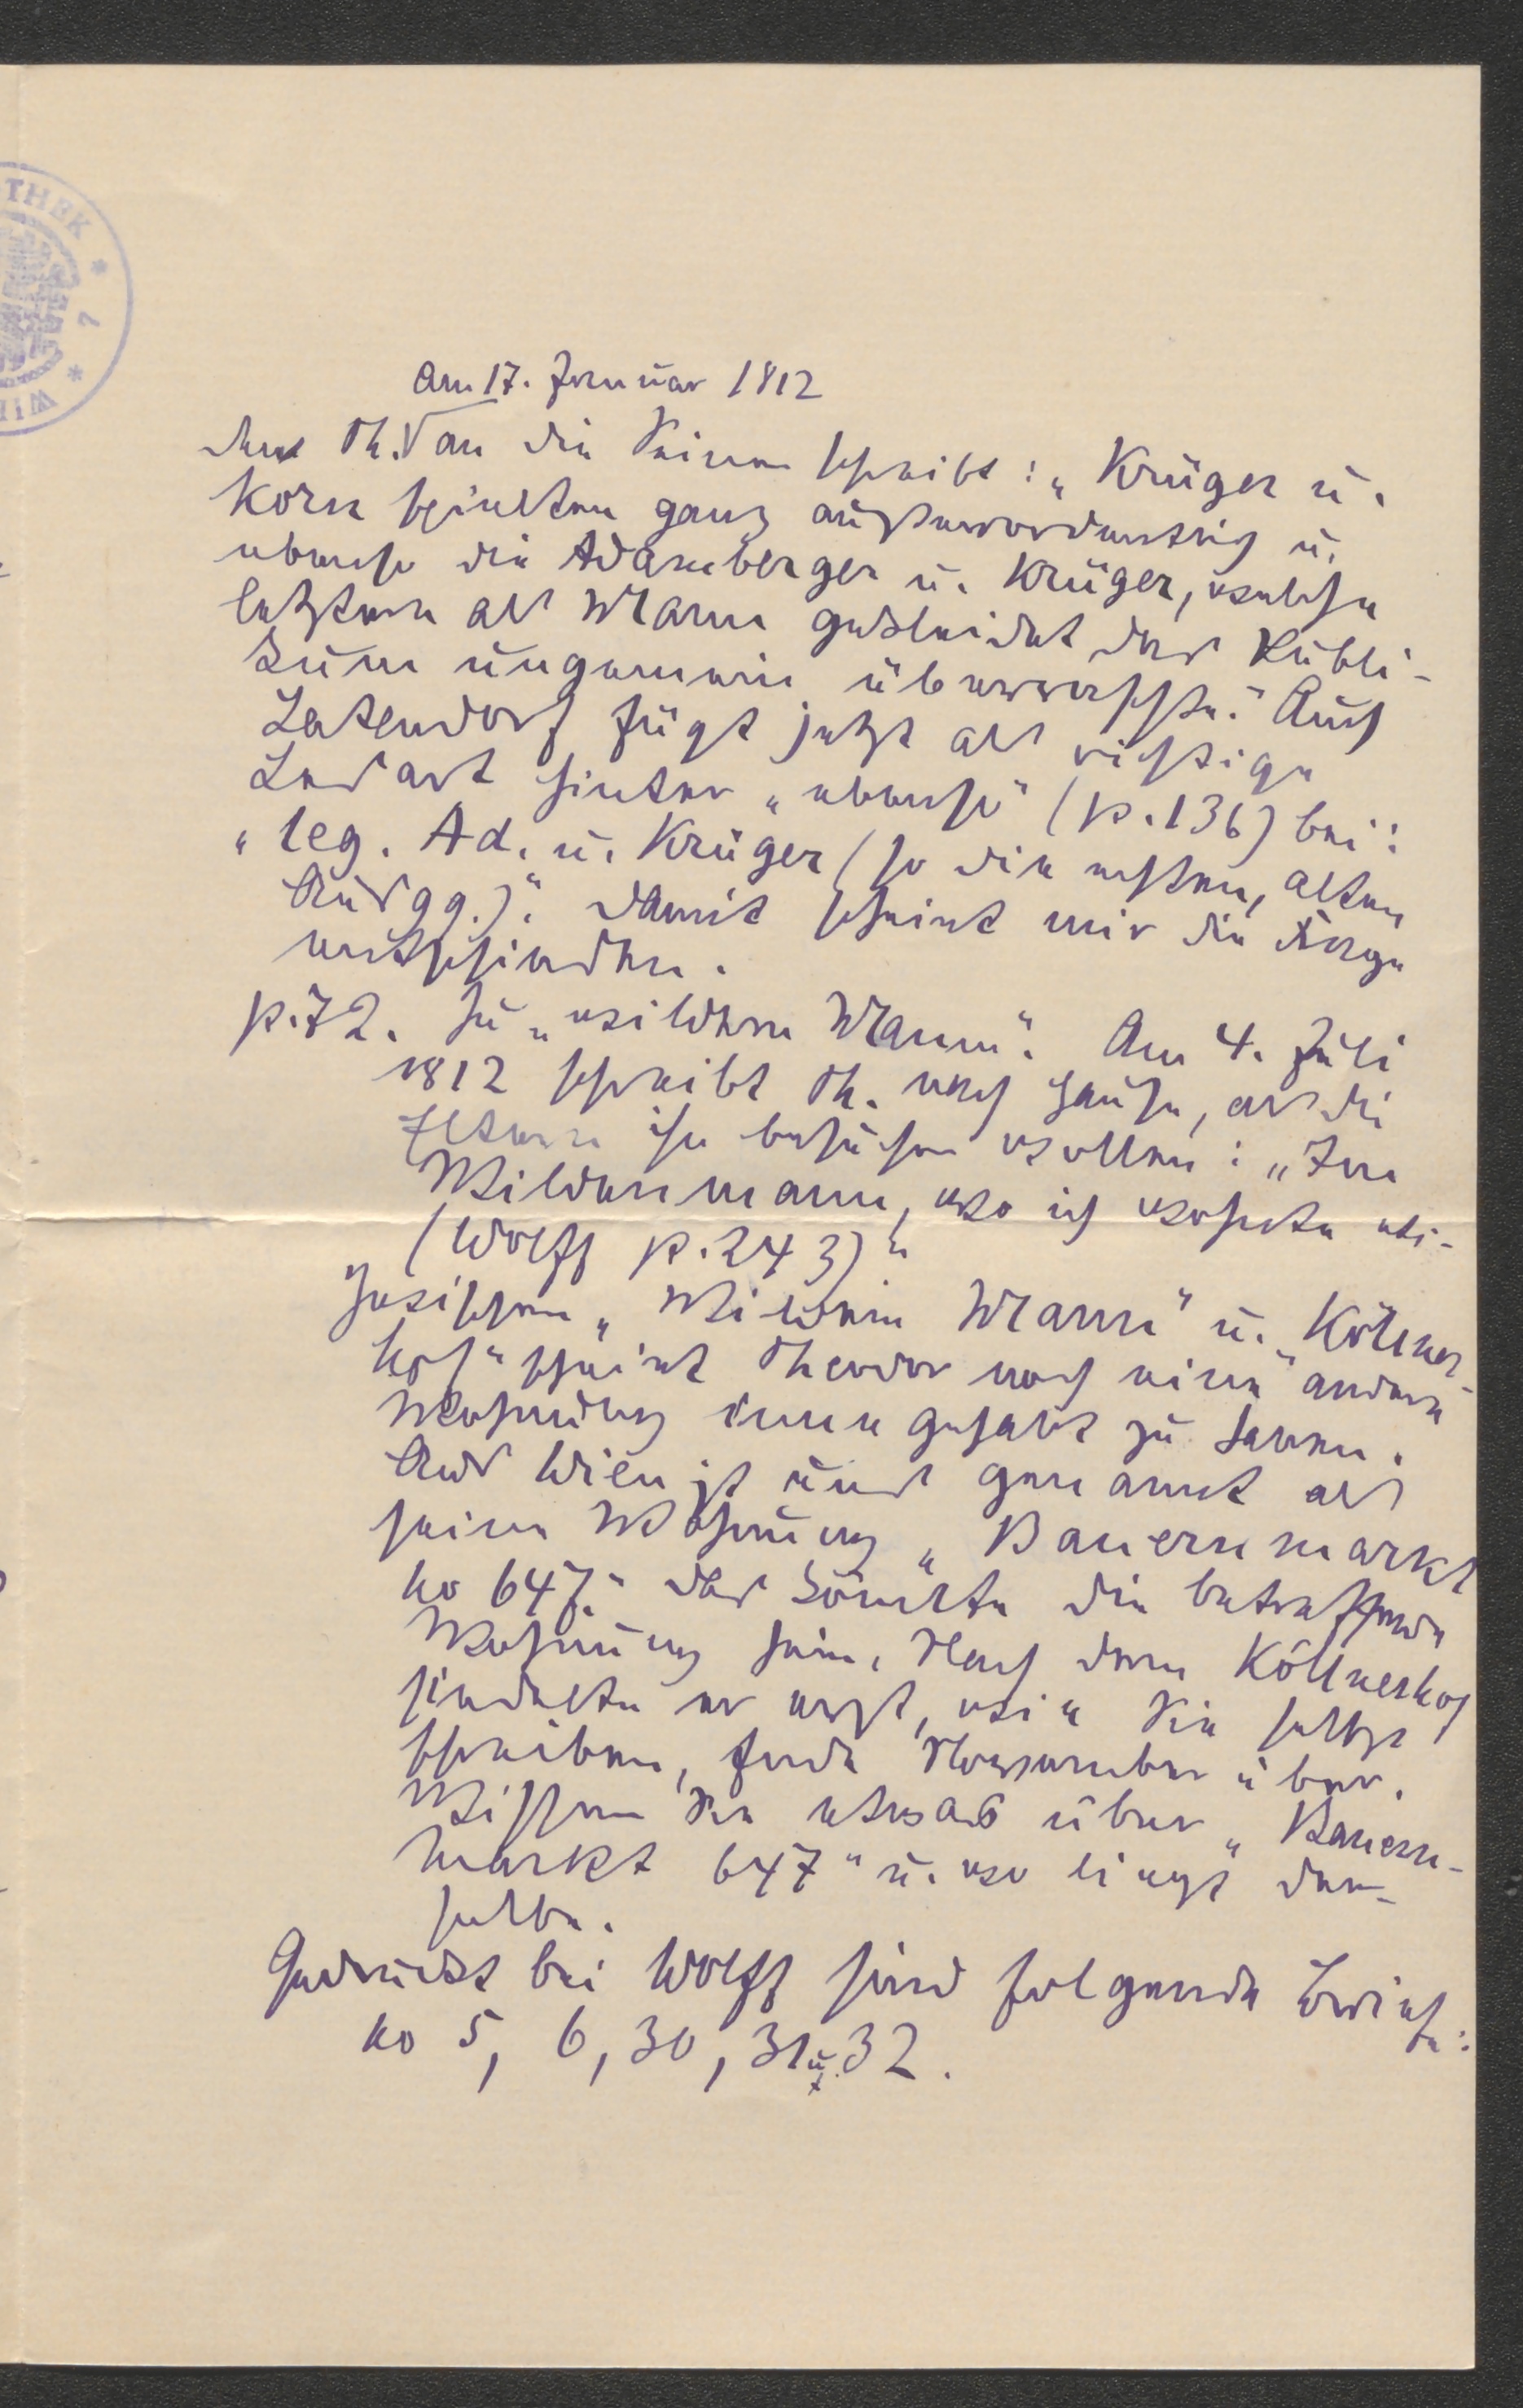 THEK * 7 * WI
Am 17. Januar 1812
denn Th. an die Seinen schreibt: „Krüger u.
Korn spielten ganz außerordentlich u.
ebenso die Adamberger u. Krüger, welche
letztere als Mann gekleidet das Publi-
kum ungemein überraschte.“ Auch
Latendorf fügt jetzt als richtige
Lesart hinter „ebenso“ (p. 136) bei:
„leg. Ad. u. Krüger (so die ersten, alten
Ausgg.)“. Damit scheint mir die Frage
entschieden.
p. 72. Zu „wilden Mann“. Am 4. Juli
1812 schreibt Th. nach Hause, als die
Eltern ihn besuchen wollen: „Im
Wildenmann, wo ich wohnte etc-
(Wolff p. 243)“
Zwischen „Wilden Mann“ u. „Köllner-
hof“ scheint Theodor noch eine andere
Wohnung inne gehabt zu haben.
Aus Wien ist uns genannt als
seine Wohnung „Bauernmarkt
No 647.“ Das könnte die betreffende
Wohnung sein. Nach dem Köllnerhof
siedelte er erst, wie Sie selbst
schreiben, Ende November über.
Wissen Sie etwas über „Bauern-
markt 647“ u. wo liegt der-
selbe.
Gedruckt bei Wolff sind folgende Briefe:
No 5, 6, 30, 31 u. 32.